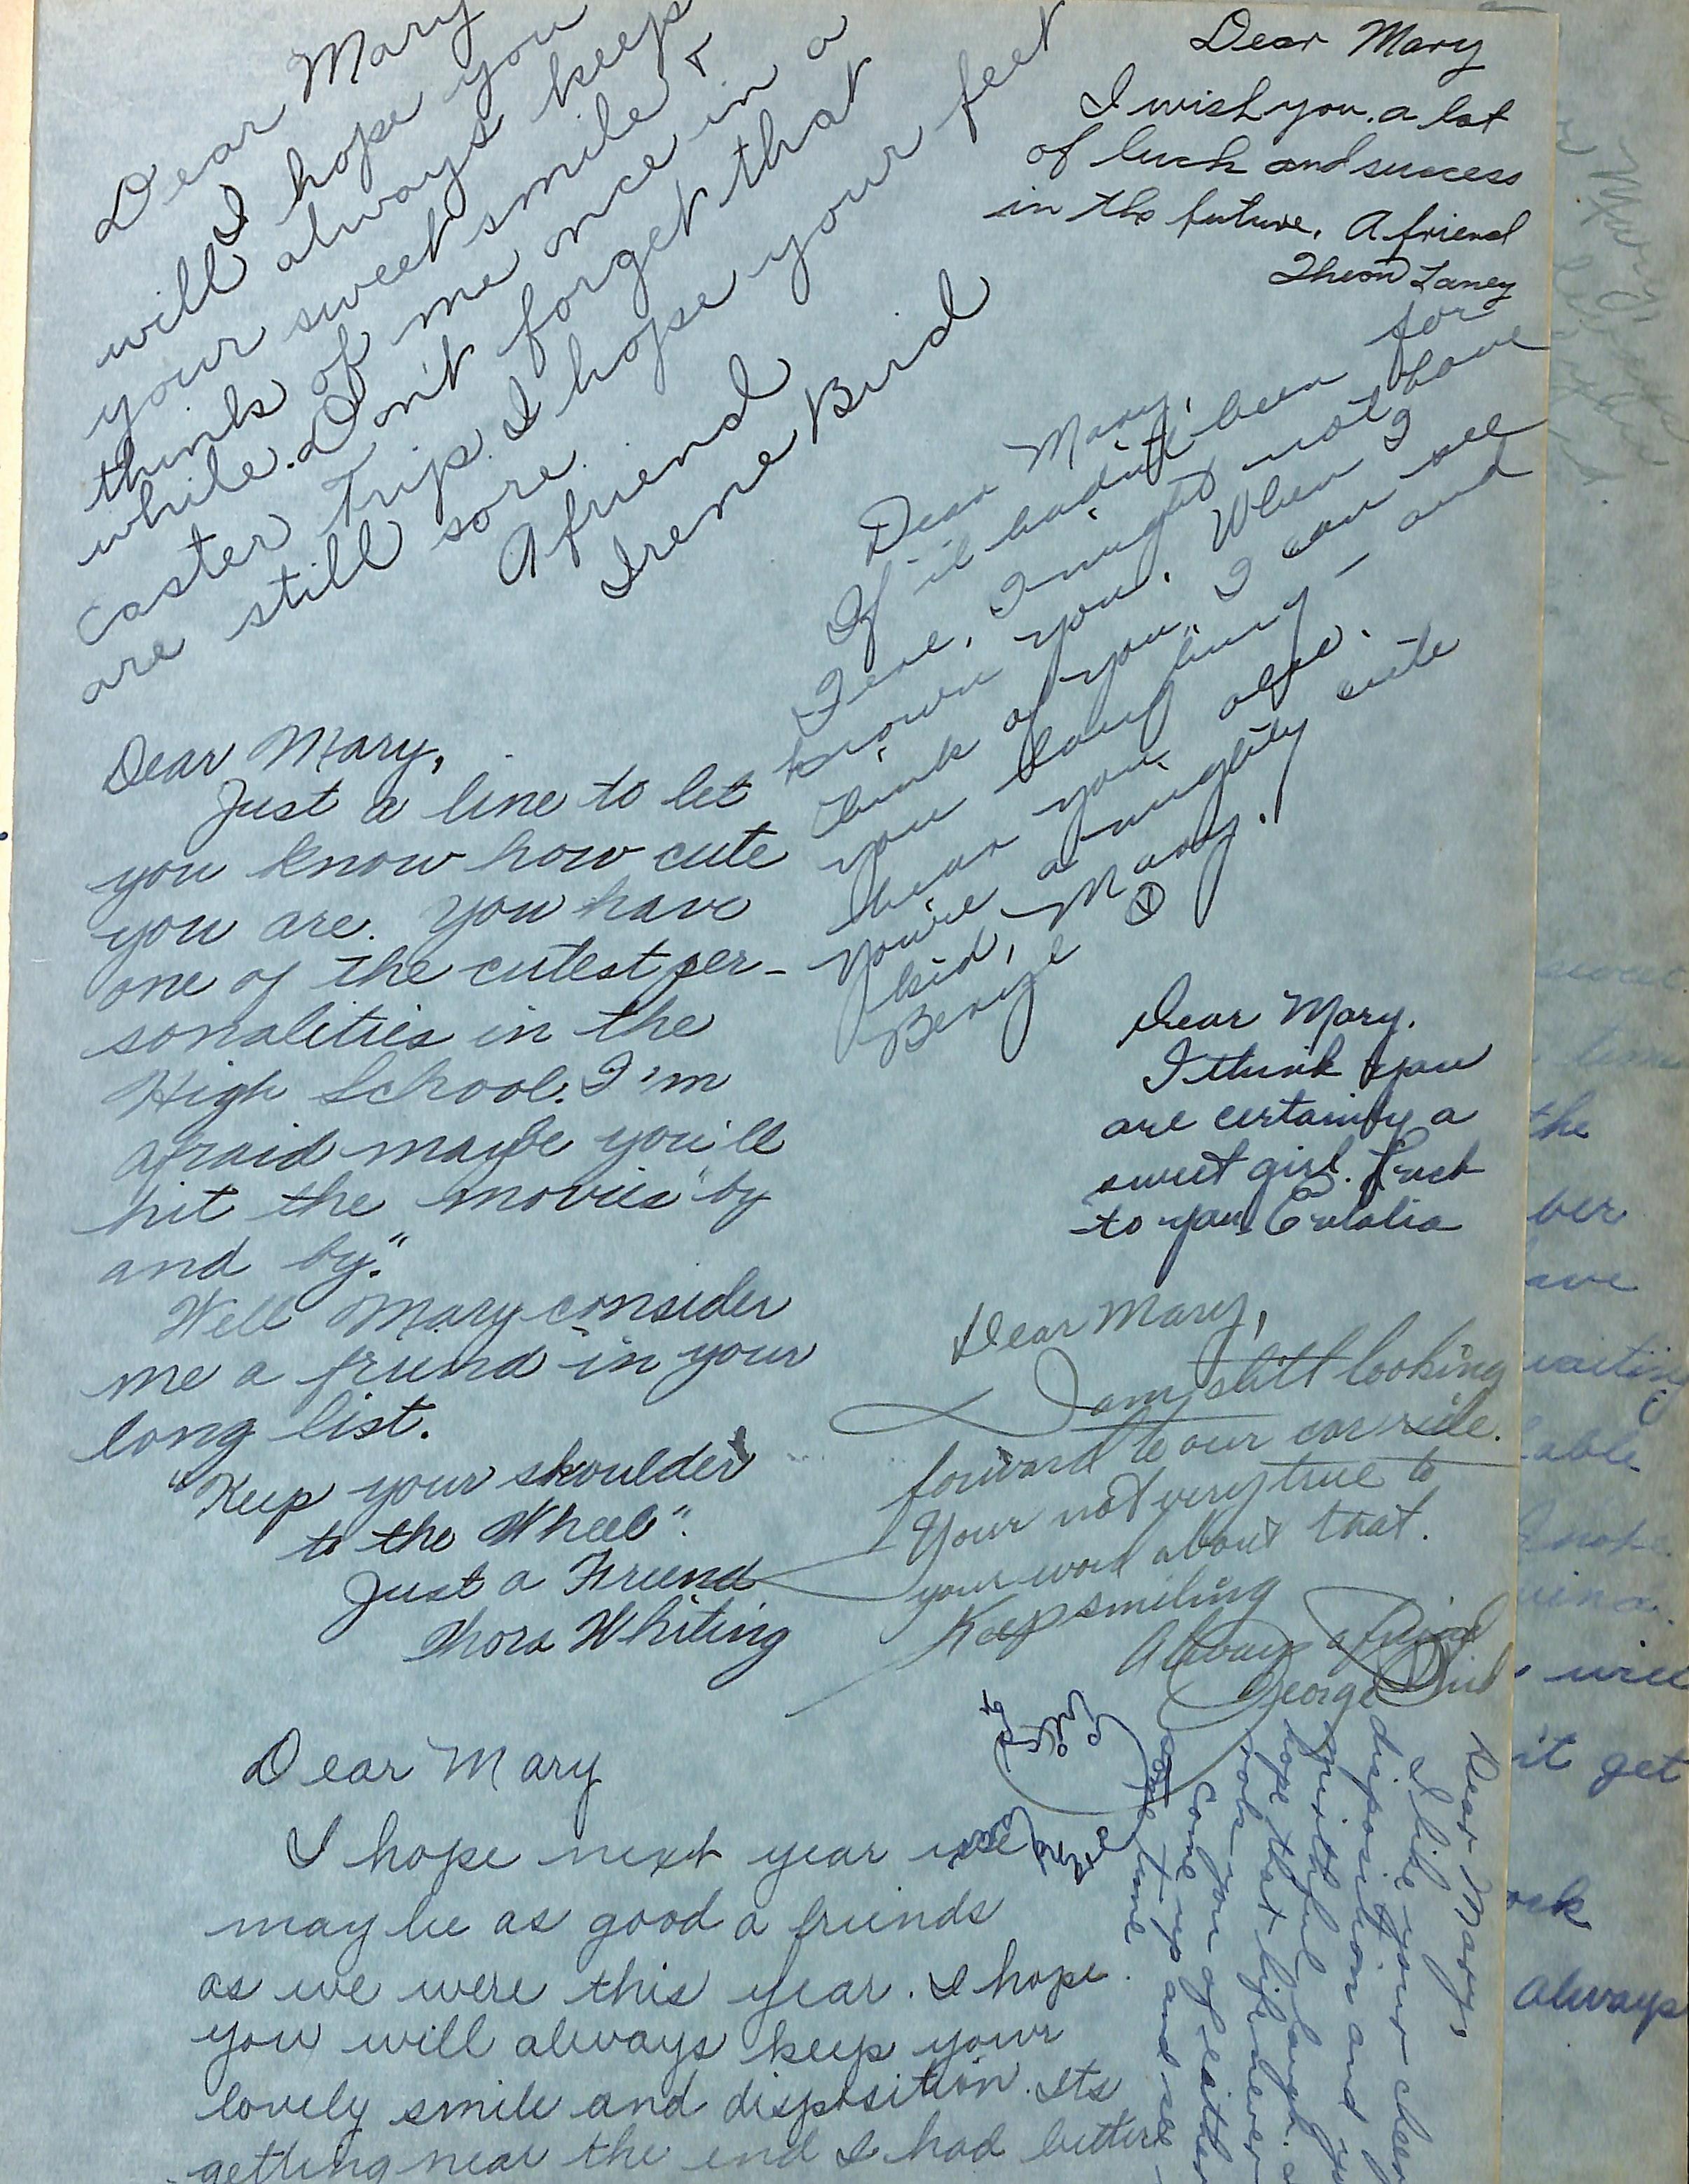 Dear Mary
I hope you
will always keep
your sweet smile &
think of me once in a
while. Don't forget that
Easter trip. I hope your feet
are still sore.
A friend
Irene Bird
Dear Mary
I wish you a lot
of luck and success
in the future. A friend
Theon Laney
Dear Mary,
If it hadn't been for
I might not have
known you. When I
think of you, I can see
you laughing – and
hear you also.
You're a naughty cute
kid, Mary.
Dear Mary,
Just a line to let
you know how cute
you are. You have
one of the cutest per-
sonalities in the
High School. I'm
afraid maybe you'll
hit the movies "by
and by."
Well Mary consider
me a friend in your
long list.
"Keep your shoulder
to the Wheel".
Just a Friend
Thora Whiting
Dear Mary.
I think you
are certainly a
sweet girl. Luck
to you. Eulalia
Dear Mary,
I am still looking
forward to our car ride.
Your not very true to
your word about that.
Keep smiling
Always a friend
George
Dear Mary
I hope next year we
may be as good a friends
as we were this year. I hope
you will always keep your
lovely smile and disposition. Its
getting near the end I had better
Dear Mary,
I like your cheer
disposition and
mirthful laugh.
hope that life never
robs you of either
Come up and see
some time
sweet
the
ber
ave
waiting
able
will
it get
ork
always